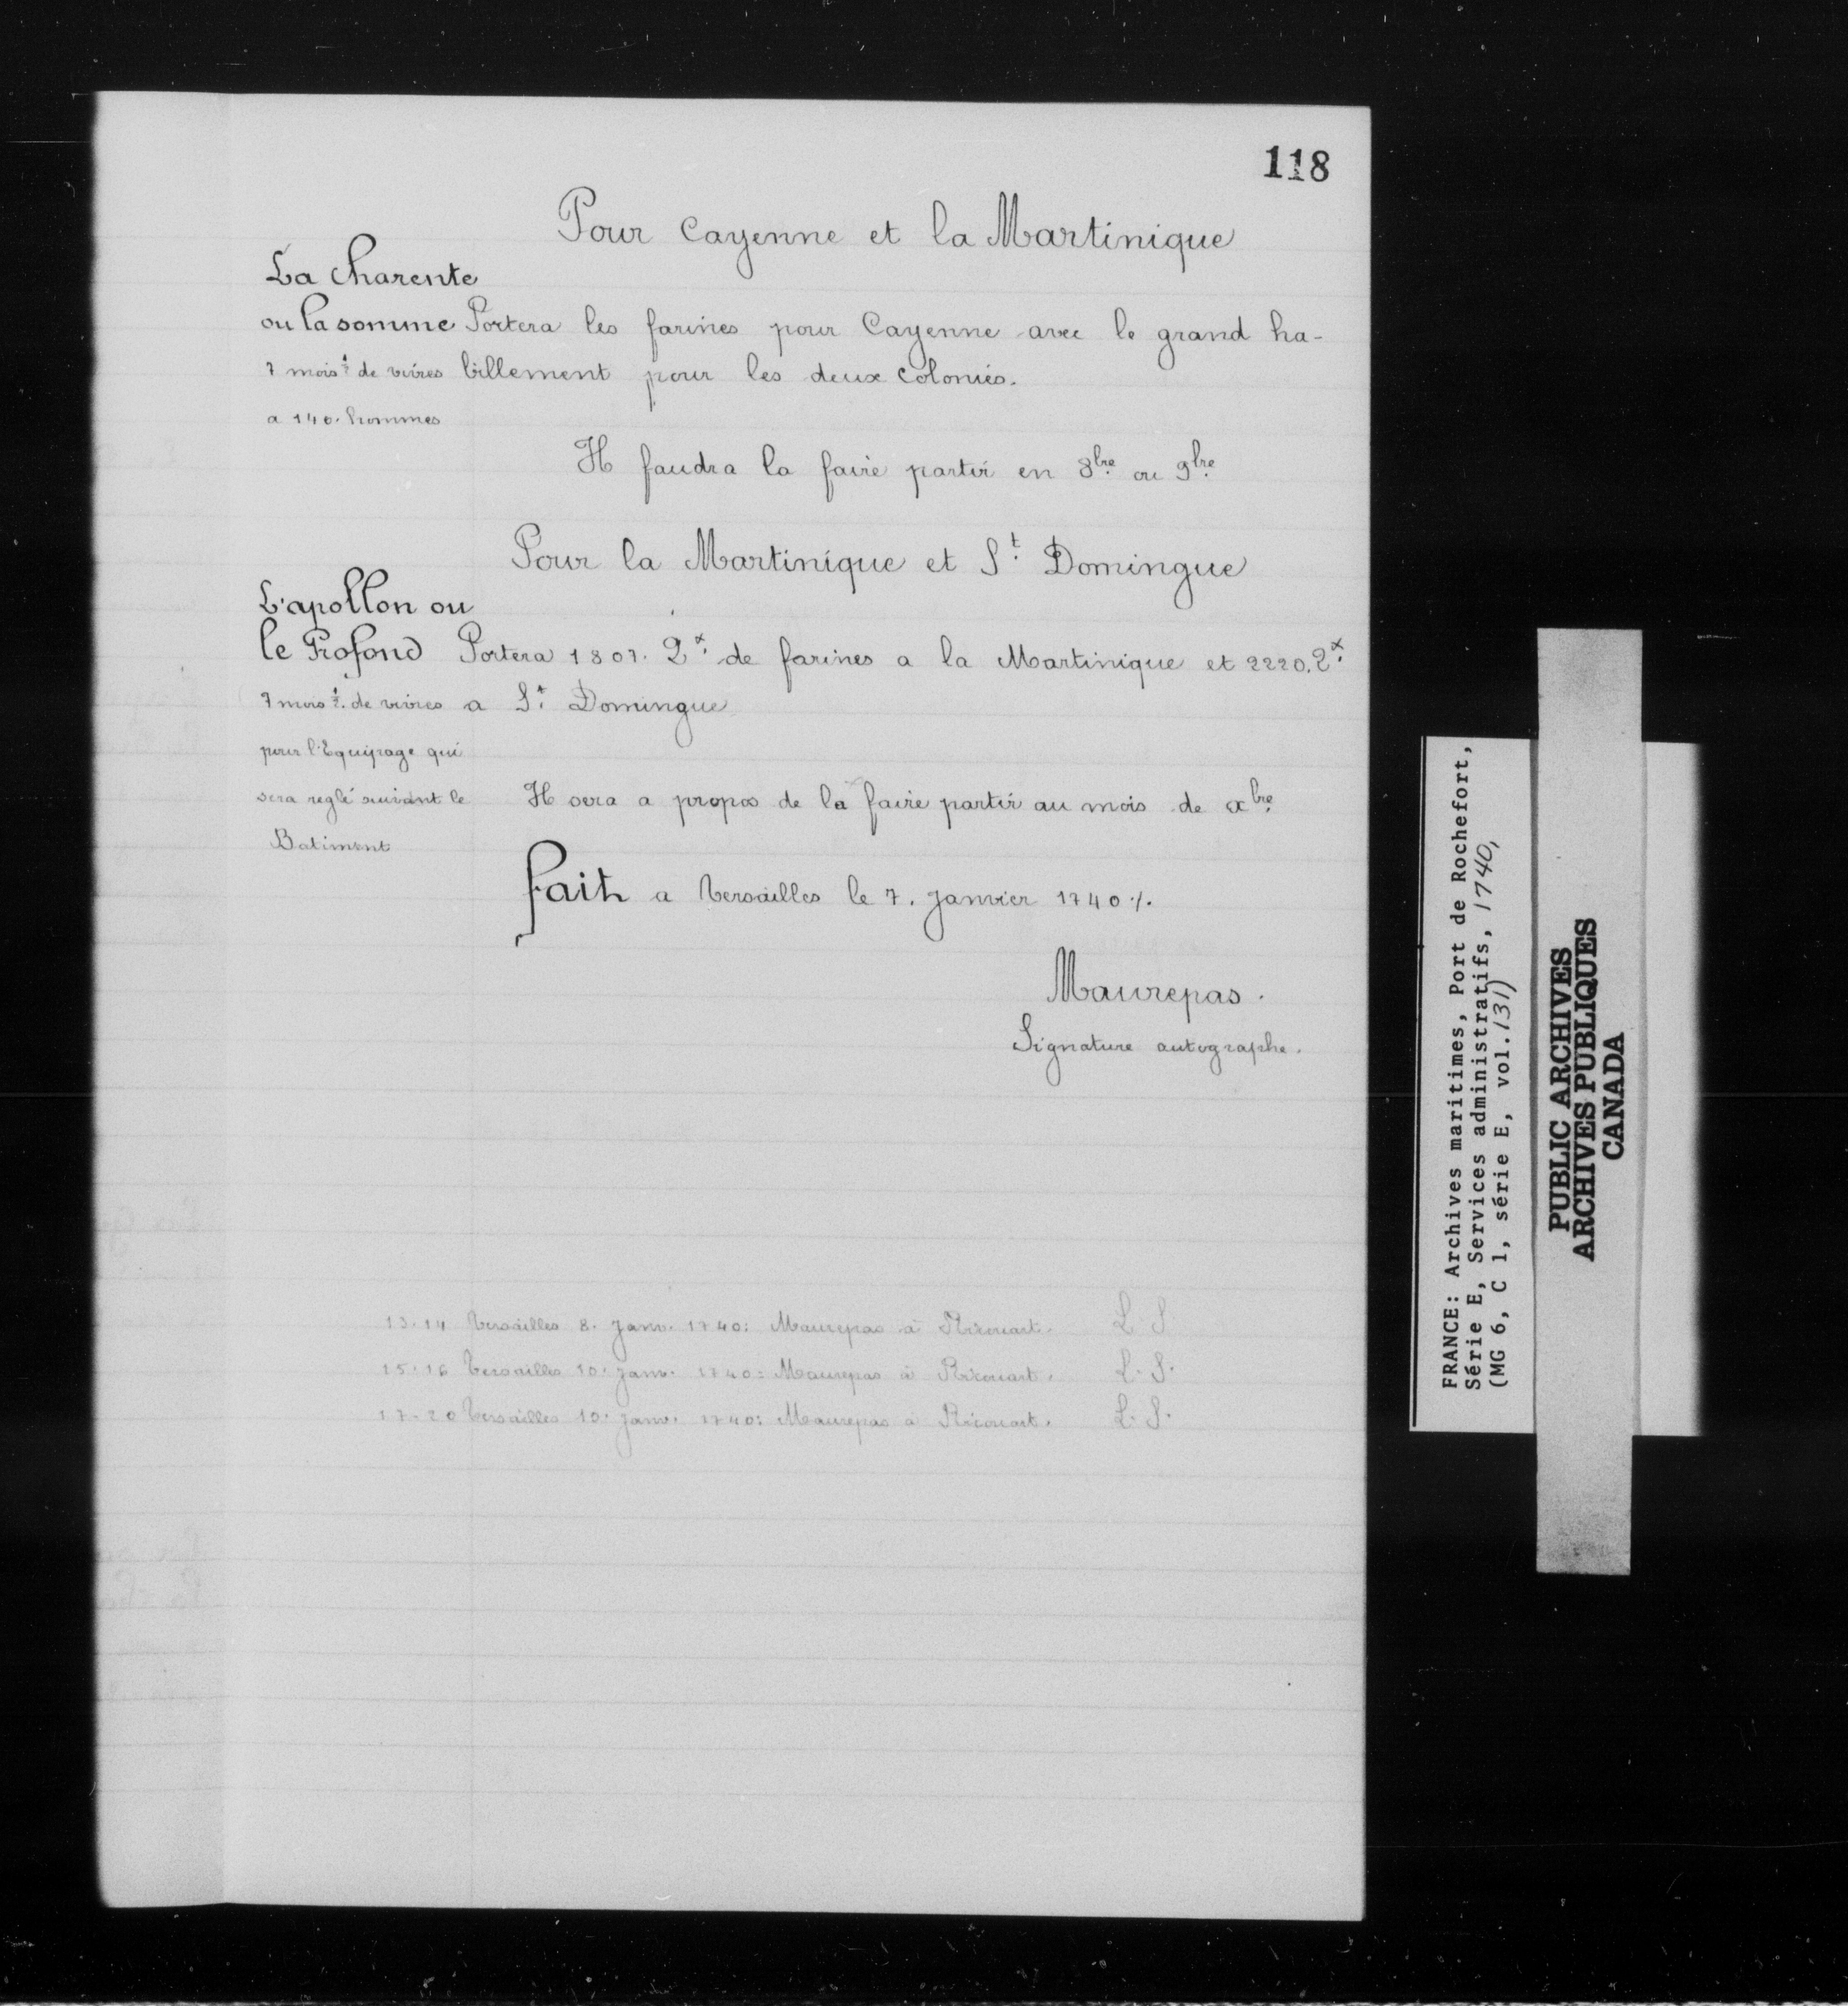 118
Pour Cayenne et la Martinique
La Charente
ou la somme Portera les farines pour Cayenne avec le grand ha-
7 mois ½ de vivres billement pour les deux Colonies.
a 140. hommes
Il faudra la faire partir en 8bre ou 9bre
Pour la Martinique et St. Domingue
L'apollon ou
le Profond Portera 1807. Qx de farines a la Martinique et 2220. Qx
7 mois ½. de vivres a St. Domingue
pour l'Equipage qui
sera reglé suivant le Il sera a propos de la faire partir au mois de xbre
Batiment
fait a Versailles le 7. Janvier 1740 ./.
Maurepas.
Signature autographe.
13-14 Versailles 8. Janv. 1740: Maurepas à Ricouart. L. S
15-16 Versailles 10. Janv. 1740: Maurepas à Ricouart. L. S.
17-20 Versailles 10. Janv. 1740: Maurepas à Ricouart. L. S.
FRANCE: Archives maritimes, Port de Rochefort,
Série E, Services administratifs, 1740,
(MG 6, C 1, série E, vol. 131)
PUBLIC ARCHIVES
ARCHIVES PUBLIQUES
CANADA